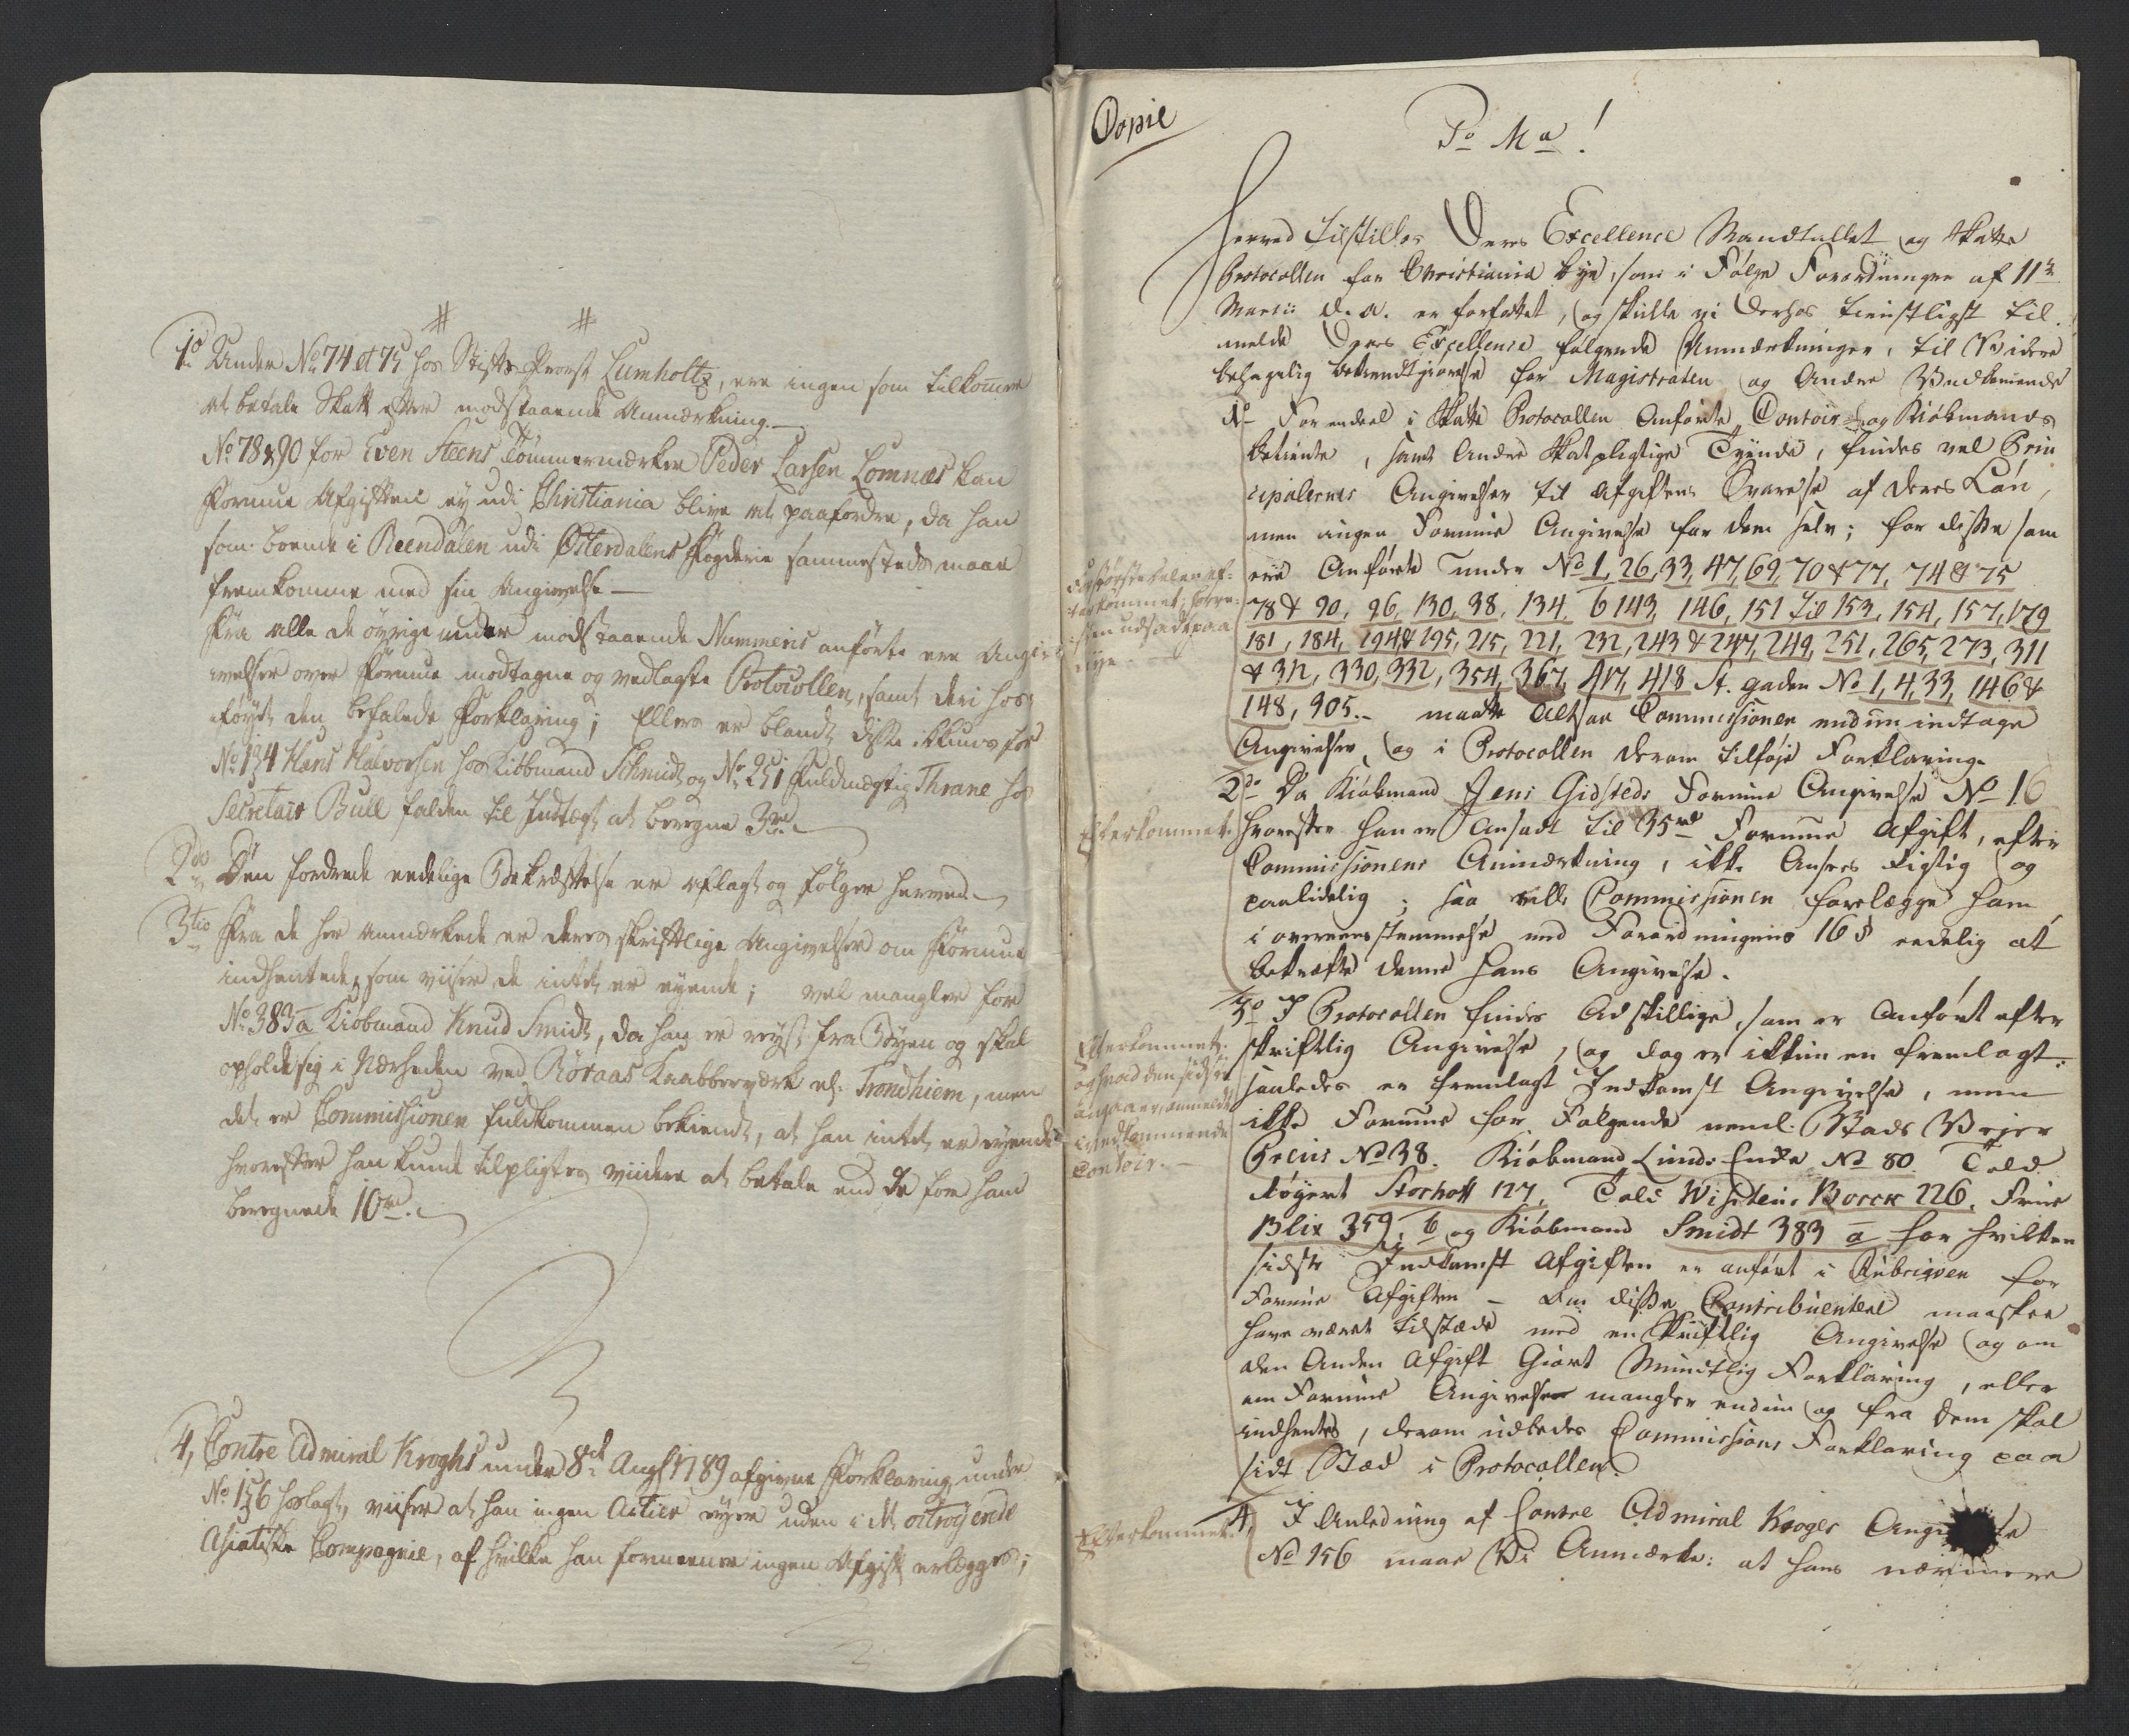 # #
1o Under No 74 et 75 hos Stifts Provst Lumholtz, ere ingen som tilkommer
at betale Skatt efter modstaaende Anmærkning.
No 78 & 90 for Even Steens Tømmermærker Peder Larsen Lomnæs kan
Formue Afgiften ey udi Christiania blive at paafordre, da han
som boende i Reendalen udi Østerdalens Fogderie sammesteds maae
fremkomme med sin Angivelse —
Fra alle de øvrige under modstaaende Nummeris anførte ere Angi-
velser over Formue modtagne og vedlagte Protocollen, samt deri hos-
føyet den befalede Forklaring; Ellers er blandt disse ikkuns for
No 134 Hans Halvorsen hos Kiøbmand Schmidt og No 251 Fuldmægtig Thrane hos
Secretair Bull falden til Indtægt at beregne 3rd.
2do Den fordrede eedelige Bekræftelse er aflagt og følger herved.
3tio Fra de her anmærkede er deres skriftlige Angivelser om Formue
indhentede, som viiser de intet er eyende; vel mangler for
No 383 a Kiøbmand Knud Smidt, da han er reyst fra Byen og skal
opholde sig i Nærheden ved Røraas Kaabberværk el. Trondhiem, men
det er Commissionen fuldkommen bekiendt, at han intet er eyende
hvorefter han kunde tilpligtes viidere at betale end de for ham
beregnede 10rd.
4, Contre Admiral Kroghs under 8de Augs 1789 afgivne Forklaring under
No 156 hoslagt, viiser at han ingen Actier eyer uden i det octroyerede
Asiatiske Compagnie, af hvilke han formener ingen Afgift erlægges;
Copie
P.o M.a!
Herved tilstilles Deres Excellence Mandtallet og Skatte
Protocollen for Christiania Bye, som i Følge Forordningen af 11te
Martii d. a. er forfattet, og skulle vi derhos tienstligst til-
melde Deres Excellence følgende Anmærkninger, til Videre
behagelig bekiendtgiørelse for Magistraten og Andre Vedkommende
1o For endeel i Skatte Protocollen Anførte Contoir- og Kiøbmands
betiente, samt Andre skatpligtige Tyende, findes vel Prin
cipalernes Angivelser til Afgiftens Svarelse af deres Løn,
men ingen Formue Angivelse for dem selv; for disse som
ere Anførte under No 1, 26, 33, 47, 69, 70 & 77, 74 & 75
78 & 90, 96, 130, 38, 134, b 143, 146, 151 til 153, 154, 157, 179
181, 184, 194 & 195, 215, 221, 232, 243 & 247, 249, 251, 265, 273, 311
& 312, 330, 332, 354, 367, 417, 418 St. gaden No 1, 4, 33, 146 &
148, 905. — maatte Altsaa Commissionen endnu indtage
Angivelser, og i Protocollen derom tilføje Forklaring.
2do Da Kiøbmand Jens Gidsteds Formue Angivelse No 16
Efterkommet.
hvorefter han er Ansadt til 35rd Formue Afgift, efter
Commissionens Anmærkning, ikke Ansees rigtig og
paalidelig; saa vill Commissionen forelægge ham
i overeensstemmelse med Forordningens 16 § eedelig at
bekræfte denne hans Angivelse.
3o I Protocollen findes Adskillige, som er Anført efter
Efterkommet.
skriftlig Angivelse, og dog er ikkun en fremlagt:
saaledes er fremlagt Indkomst Angivelse, men
ikke Formue for Følgende neml. Stads Vejer
Vedkommende
Contoir. —
Greiis No 38. Kiøbmand Linds Enke No 80 Told
Røgert Storhoff 127, Told Visiteur Borck 226, Frue
Blix 359, b og Kiøbmand Smidt 383 a for hvilken
sidste Indkomst Afgiften er anført i Rubriqven for
Formue Afgiften — Om disse Contribuentere maaskee
have været tilstæde med en skriftlig Angivelse og om
den Anden Afgift Giort Mundtlig Forklaring, eller
om Formue Angivelser mangler endnu og fra dem skal
indhentes, derom udbedes Commissions Forklaring paa
sidt Stæd i Protocollen.
Efterkommet.
4, I Anledning af Contre Admiral Kroges
No 156 maae Vi Anmærke: at hans nærmere